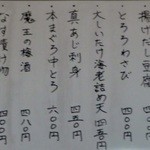 揚げだし豆腐
とろろわさび
大しいたけ海老詰め天 四五〇円
真あじ刺身 四五〇円
本まぐろ中とろ 六〇〇円
魔王の梅酒 四八〇円
なす漬け肉 四〇〇円